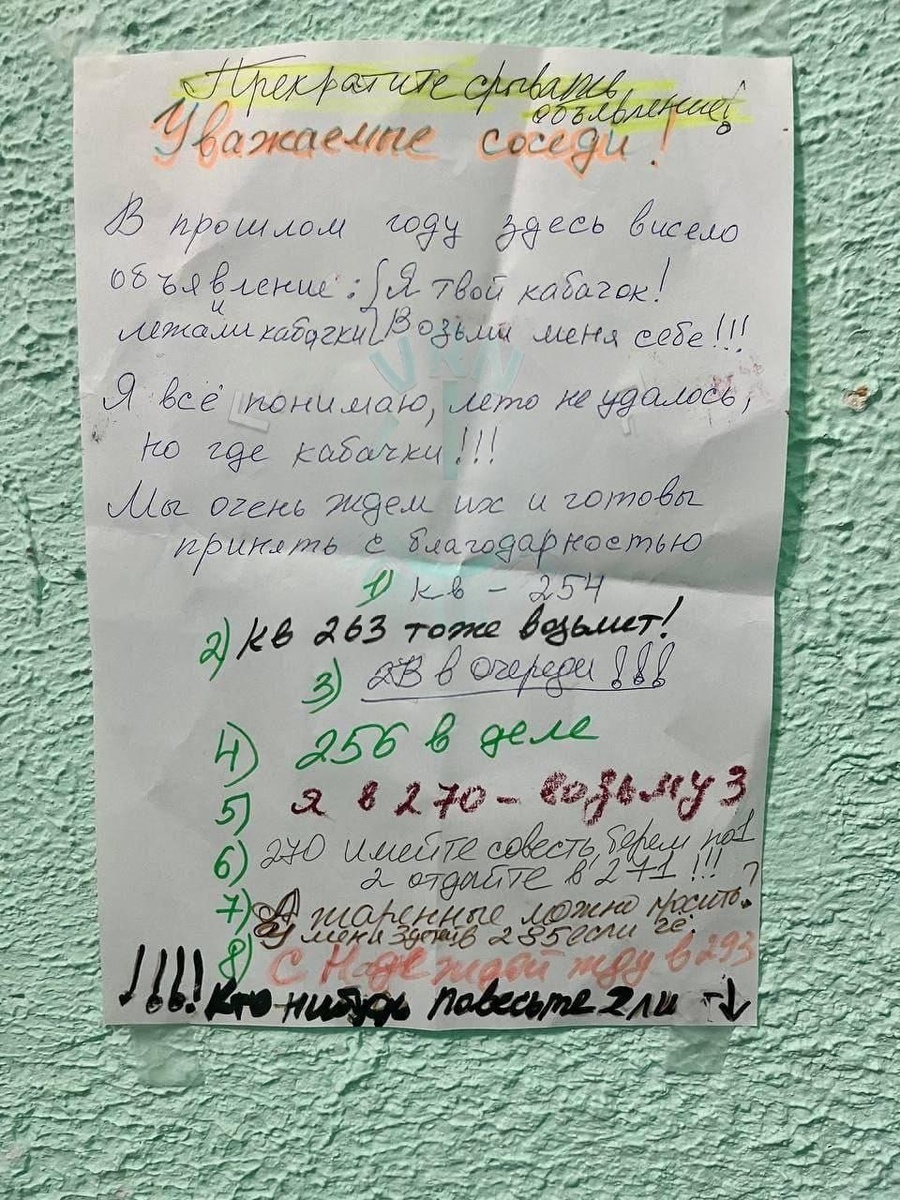 Прекратите срывать
объявление!
Уважаемые соседи!
В прошлом году здесь висело
объявление: Я твой кабачок!
и
лежали кабачки Возьми меня себе!!!
Я всё понимаю, лето не удалось,
но где кабачки!!!
Мы очень ждем их и готовы
принять с благодарностью
1) кв - 254
2) кв 263 тоже возьмет!
3) в очереди!!!
4) 256 в деле
5) я в 270 - возьму 3
6) 270 имейте совесть, берем по 1
2 отдайте в 271!!!
7) А жаренные можно просить?
У меня в 295 если чё.
8) С Надеждой жду в 293
!!!! Кто нибудь повесьте 2 ли